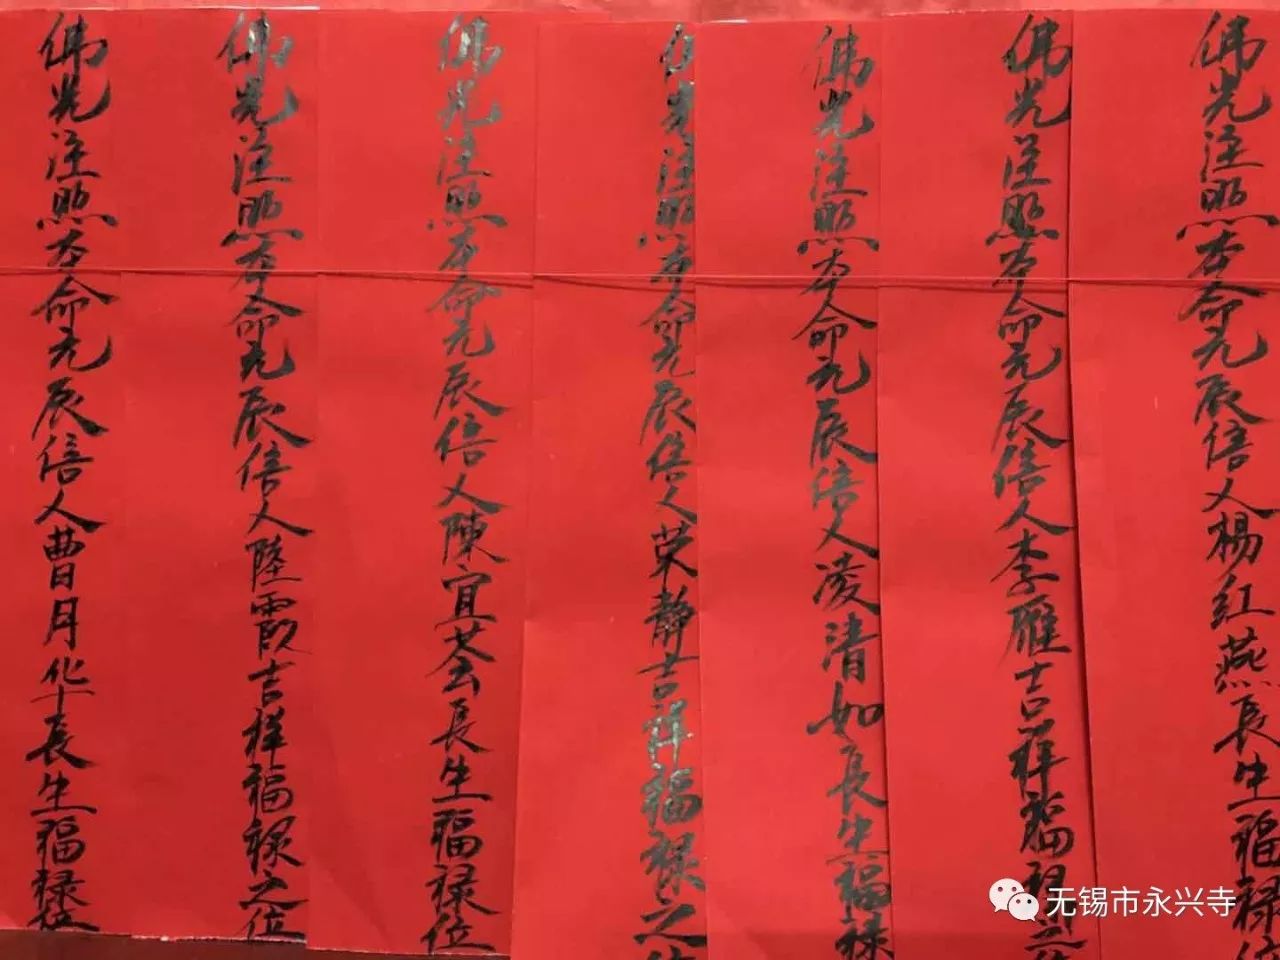 佛光注照本命元辰信人楊紅燕長生福祿位
佛光注照本命元辰信人李雁吉祥福祿之位
佛光注照本命元辰信人凌清如長生福祿
佛光注照本命元辰信人荣静吉祥福祿之位
佛光注照本命元辰信人陳宜荃長生福祿位
佛光注照本命元辰信人陸霞吉祥福祿之位
佛光注照本命元辰信人曹月华長生福祿位
无锡市永兴寺